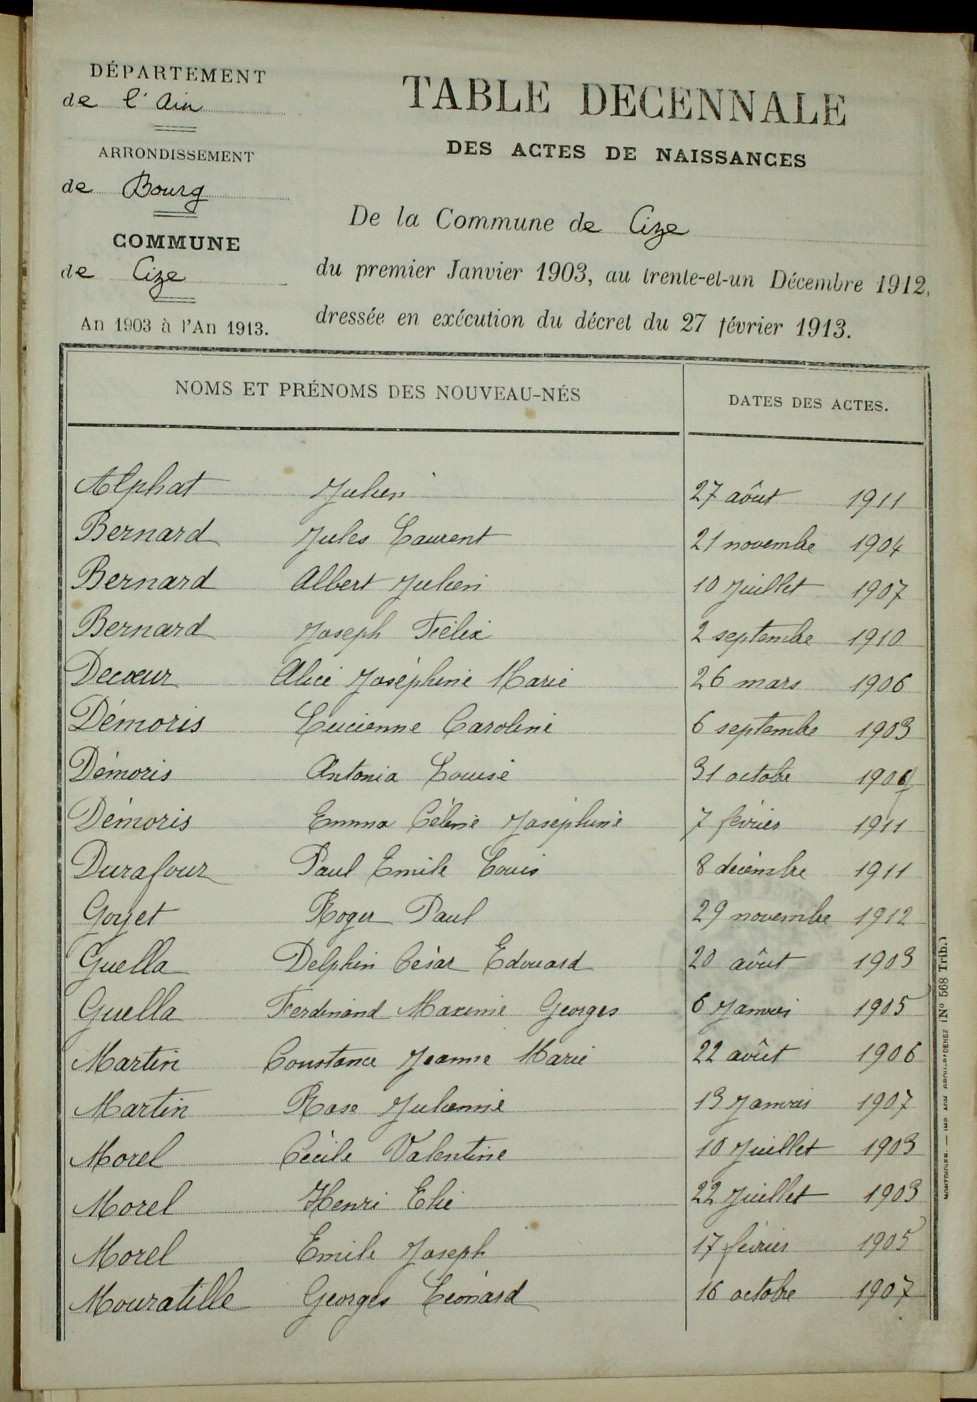 DÉPARTEMENT
de l'Ain
ARRONDISSEMENT
de Bourg
COMMUNE
de Cize
An 1903 à l'An 1913.
TABLE DECENNALE
DES ACTES DE NAISSANCES
De la Commune de Cize
du premier Janvier 1903, au trente-et-un Décembre 1912,
dressée en exécution du décret du 27 février 1913.
NOMS ET PRÉNOMS DES NOUVEAU-NÉS DATES DES ACTES.
Alphat Julien 27 aôut 1911
Bernard Jules Laurent 21 novembre 1904
Bernard Albert Julien 10 Juillet 1907
Bernard Joseph Félix 2 septembre 1910
Decœur Alice Joséphine Marie 26 mars 1906
Démoris Lucienne Caroline 6 septembre 1903
Démoris Antonia Louise 31 octobre
Démoris Emma Céline Joséphine 7 février 1911
Durafour Paul Emile Louis 8 décembre 1911
Goyet Roger Paul 29 novembre 1912
Guella Delphin César Edouard 20 aôut 1903
Guella Ferdinand Maxime Georges 6 Janvier 1905
Martin Constance Jeanne Marie 22 aôut 1906
Martin Rose Julienne 13 Janvier 1907
Morel Cécile Valentine 10 Juillet 1903
Morel Henri Elie 22 Juillet 1903
Morel Emile Joseph 17 février 1905
Mouratille Georges Léonard 16 octobre 1907
(N° 568 Trib.)